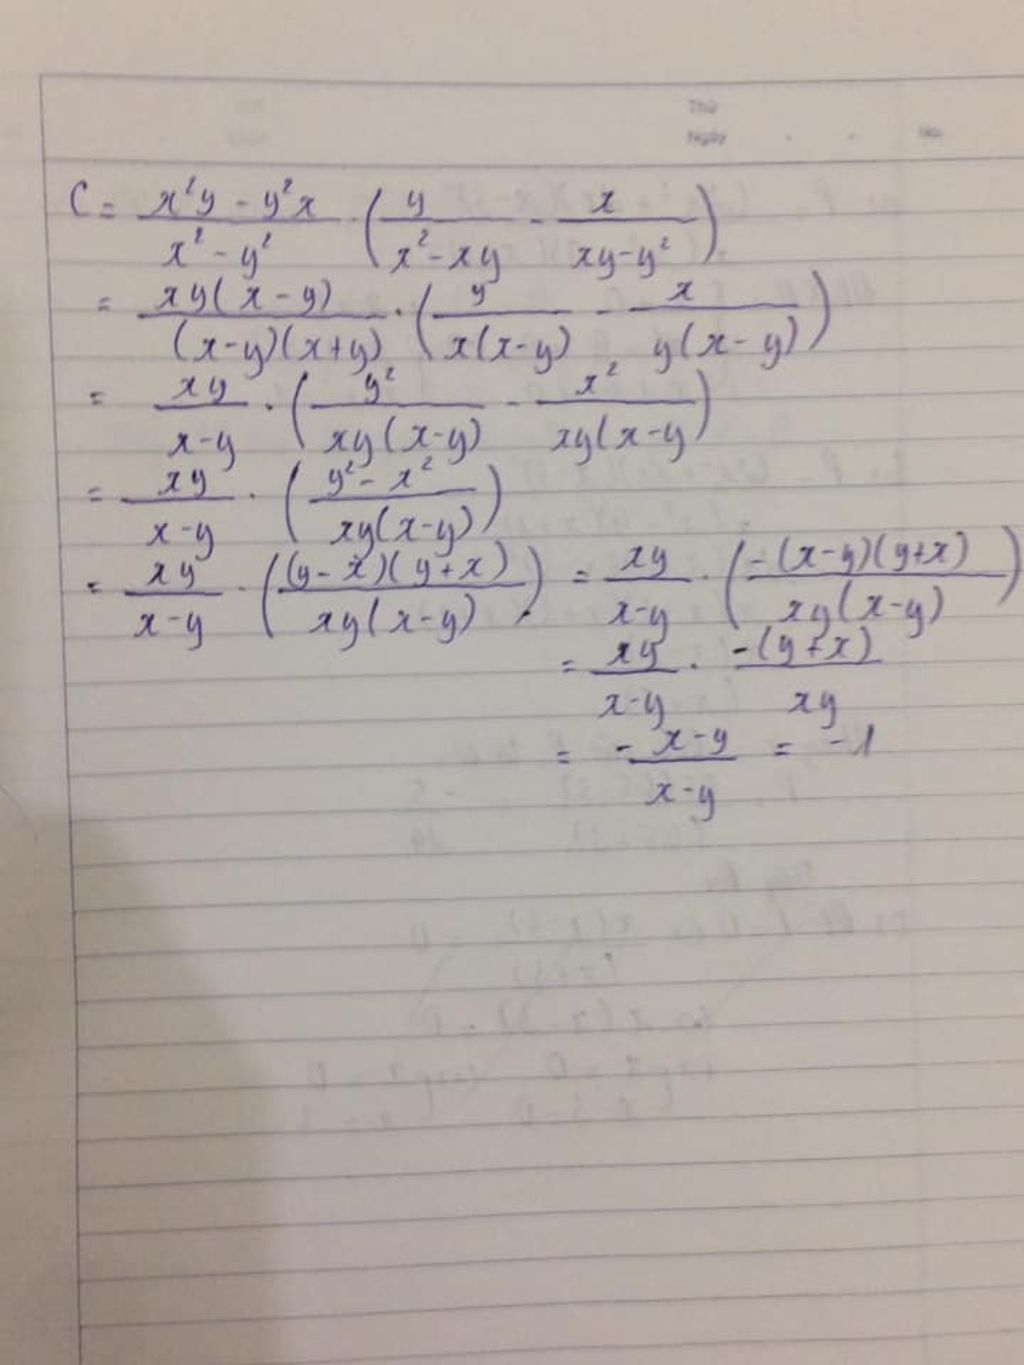 Thứ
Ngày No.
C = \frac{x^2y - y^2x}{x^2 - y^2} \cdot \left( \frac{y}{x^2 - xy} - \frac{x}{xy - y^2} \right)
= \frac{xy(x - y)}{(x-y)(x+y)} \cdot \left( \frac{y}{x(x-y)} - \frac{x}{y(x-y)} \right)
= \frac{xy}{x-y} \cdot \left( \frac{y^2}{xy(x-y)} - \frac{x^2}{xy(x-y)} \right)
= \frac{xy}{x-y} \cdot \left( \frac{y^2 - x^2}{xy(x-y)} \right)
= \frac{xy}{x-y} \cdot \left( \frac{(y-x)(y+x)}{xy(x-y)} \right) = \frac{xy}{x-y} \cdot \left( \frac{-(x-y)(y+x)}{xy(x-y)} \right)
= \frac{xy}{x-y} \cdot \frac{-(y+x)}{xy}
= - \frac{x-y}{x-y} = -1